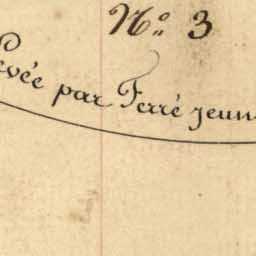 No. 3
Levée par Ferré jeune